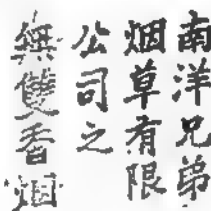 南洋兄弟
烟草有限
公司之
無雙香烟